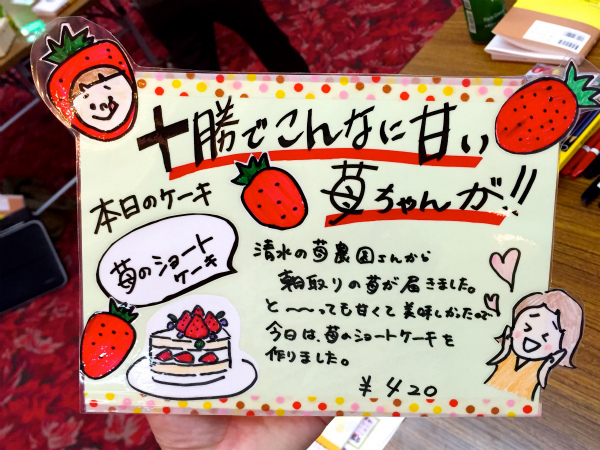 十勝でこんなに甘い
苺ちゃんが!!
本日のケーキ
苺のショート
ケーキ
清水の苺農園さんから
朝取りの苺が届きました。
と〜〜っても甘くて美味しかったので
今日は、苺のショートケーキを
作りました。
¥420